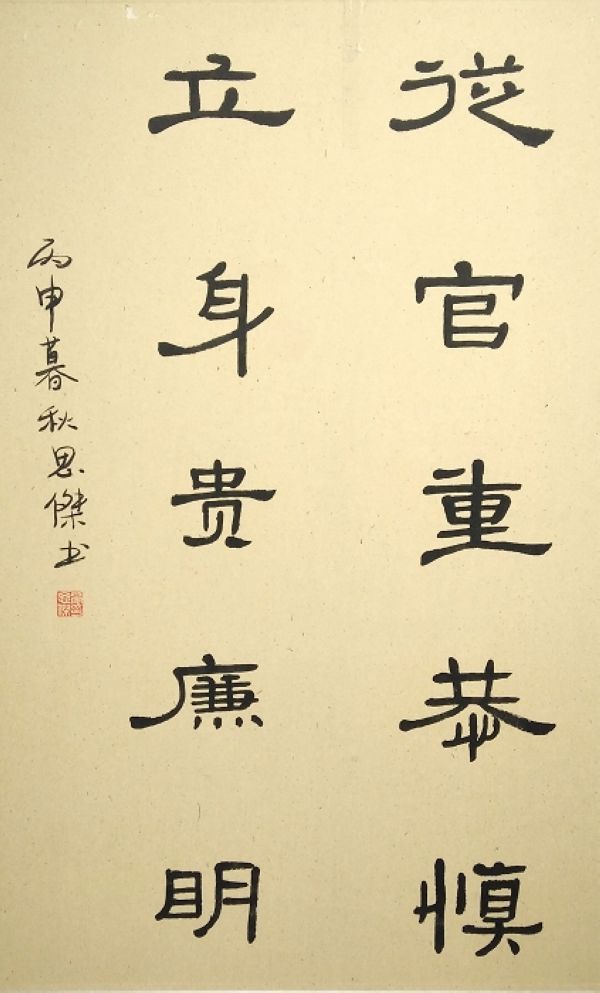 從官重恭慎
立身贵廉明
丙申暮秋思傑书